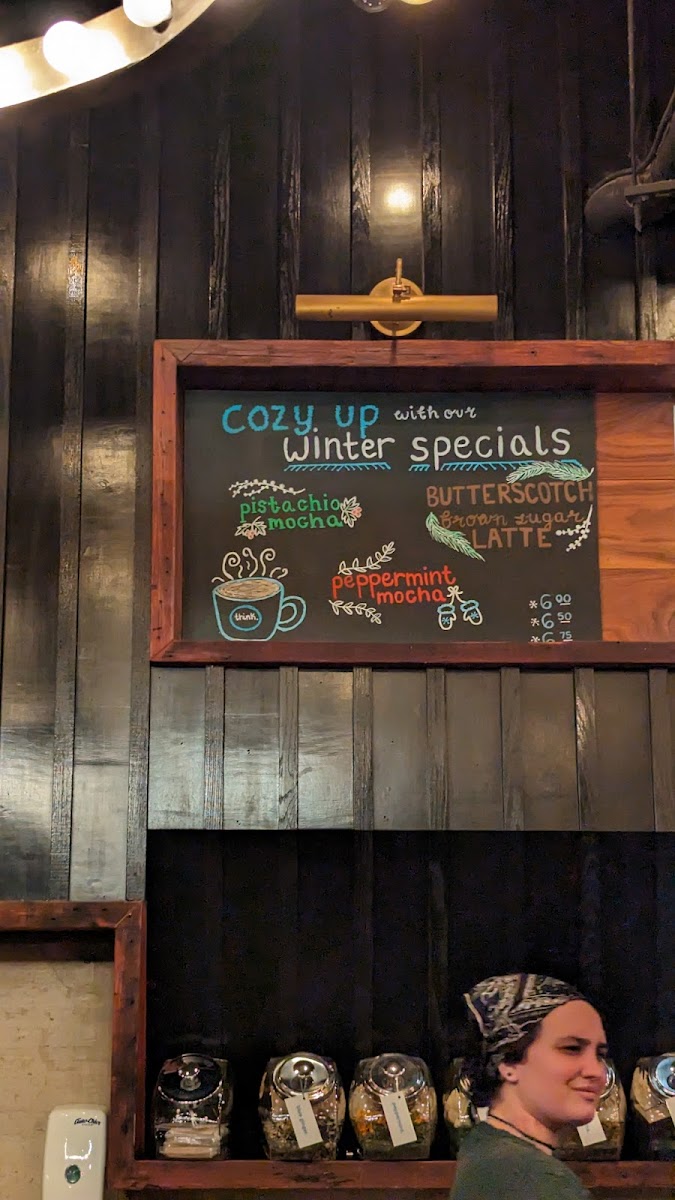 cozy up with our
winter specials
pistachio
mocha
BUTTERSCOTCH
brown sugar
LATTE
peppermint
mocha
think.
*6 00
*6 50
*6 75